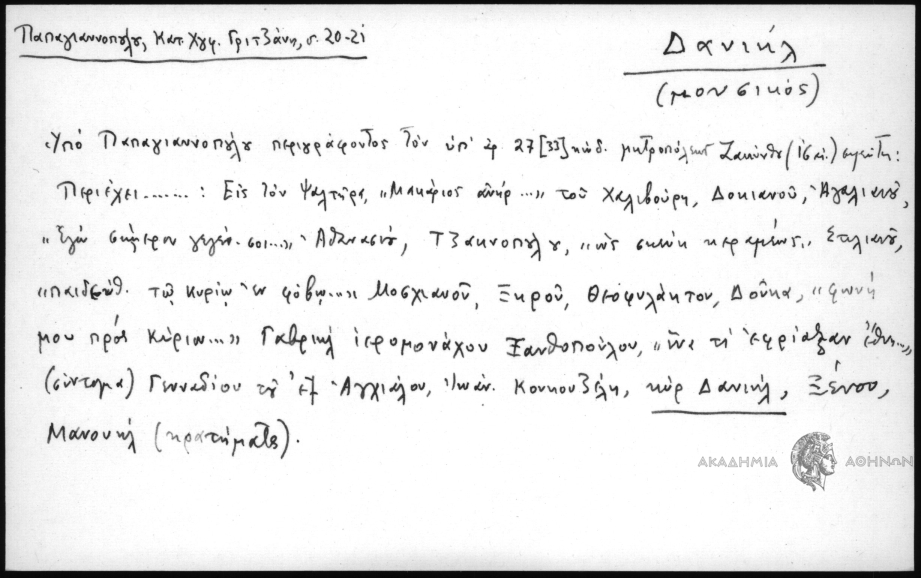 Παπαγιαννοπούλου, Κατ. Χγφ. Γριτζάνη, σ. 20-21
Δανιήλ
(μουσικός)
Ὑπὸ Παπαγιαννοπούλου περιγράφοντος τὸν ὑπ' ἀρ. 27 [33] κώδ. μητροπόλεως Ζακύνθου (ΙΣ αἰ.)
Περιέχει.......: Εἰς τὸν ψαλτῆρα, "Μακάριος ἀνήρ..." τοῦ Χαλιβούρη, Δοκιανοῦ, Ἀγαλιανοῦ,
"Ἐγὼ σήμερον γεγέν. σοι..." Ἀθανασίου, Τζακνοπούλου, "ὡς σκεύη κεραμέως" Στυλιανοῦ,
"παιδεύθ. τῷ κυρίῳ ἐν φόβῳ..." Μοσχιανοῦ, Ξηροῦ, Θεοφυλάκτου, Δούκα, "φωνή
μου πρὸς Κύριον..." Γαβριὴλ ἱερομονάχου Ξανθοπούλου, "ἵνα τί ἐφρύαξαν ἔθνη..."
(σύντομα) Γενναδίου τοῦ ἐξ Ἀγχιάλου, Ἰωάν. Κουκουζέλη, κὺρ Δανιήλ, Ξένου,
Μανουὴλ (κρατήματα).
ΑΚΑΔΗΜΙΑ ΑΘΗΝΩΝ